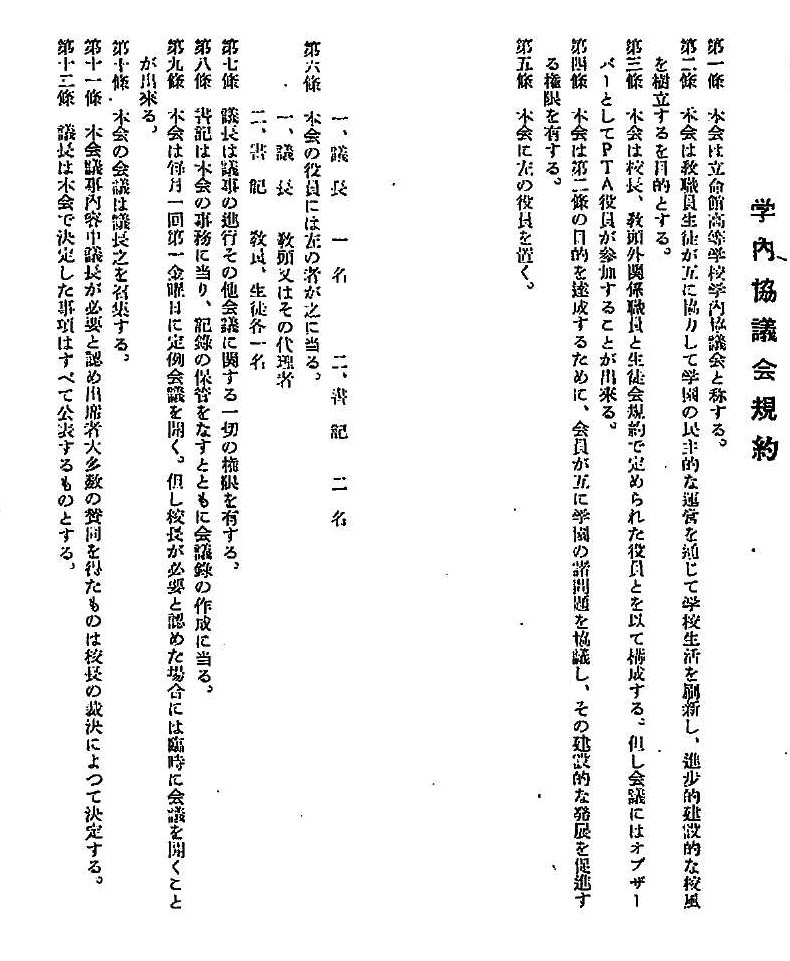 学内協議会規約
第一條　本会は立命館高等学校学内協議会と称する。
第二條　本会は教職員生徒が互に協力して学園の民主的な運営を通じて学校生活を刷新し、進歩的建設的な校風
を樹立するを目的とする。
第三條　本会は校長、教頭外関係職員と生徒会規約で定められた役員とを以て構成する。但し会議にはオブザー
バーとしてPTA役員が参加することが出来る。
第四條　本会は第二條の目的を達成するために、会員が互に学園の諸問題を協議し、その建設的な発展を促進す
る権限を有する。
第五條　本会に左の役員を置く。
一、議長　一名　　二、書記　二名
第六條　本会の役員には左の者が之に当る。
一、議長　教頭又はその代理者
二、書記　教員、生徒各一名
第七條　議長は議事の進行その他会議に関する一切の権限を有する。
第八條　書記は本会の事務に当り、記録の保管をなすとともに会議録の作成に当る。
第九條　本会は毎月一回第一金曜日に定例会議を開く。但し校長が必要と認めた場合には臨時に会議を開くこと
が出来る。
第十條　本会の会議は議長之を召集する。
第十一條　本会議事内容中議長が必要と認め出席者大多数の賛同を得たものは校長の裁決によつて決定する。
第十二條　議長は本会で決定した事項はすべて公表するものとする。